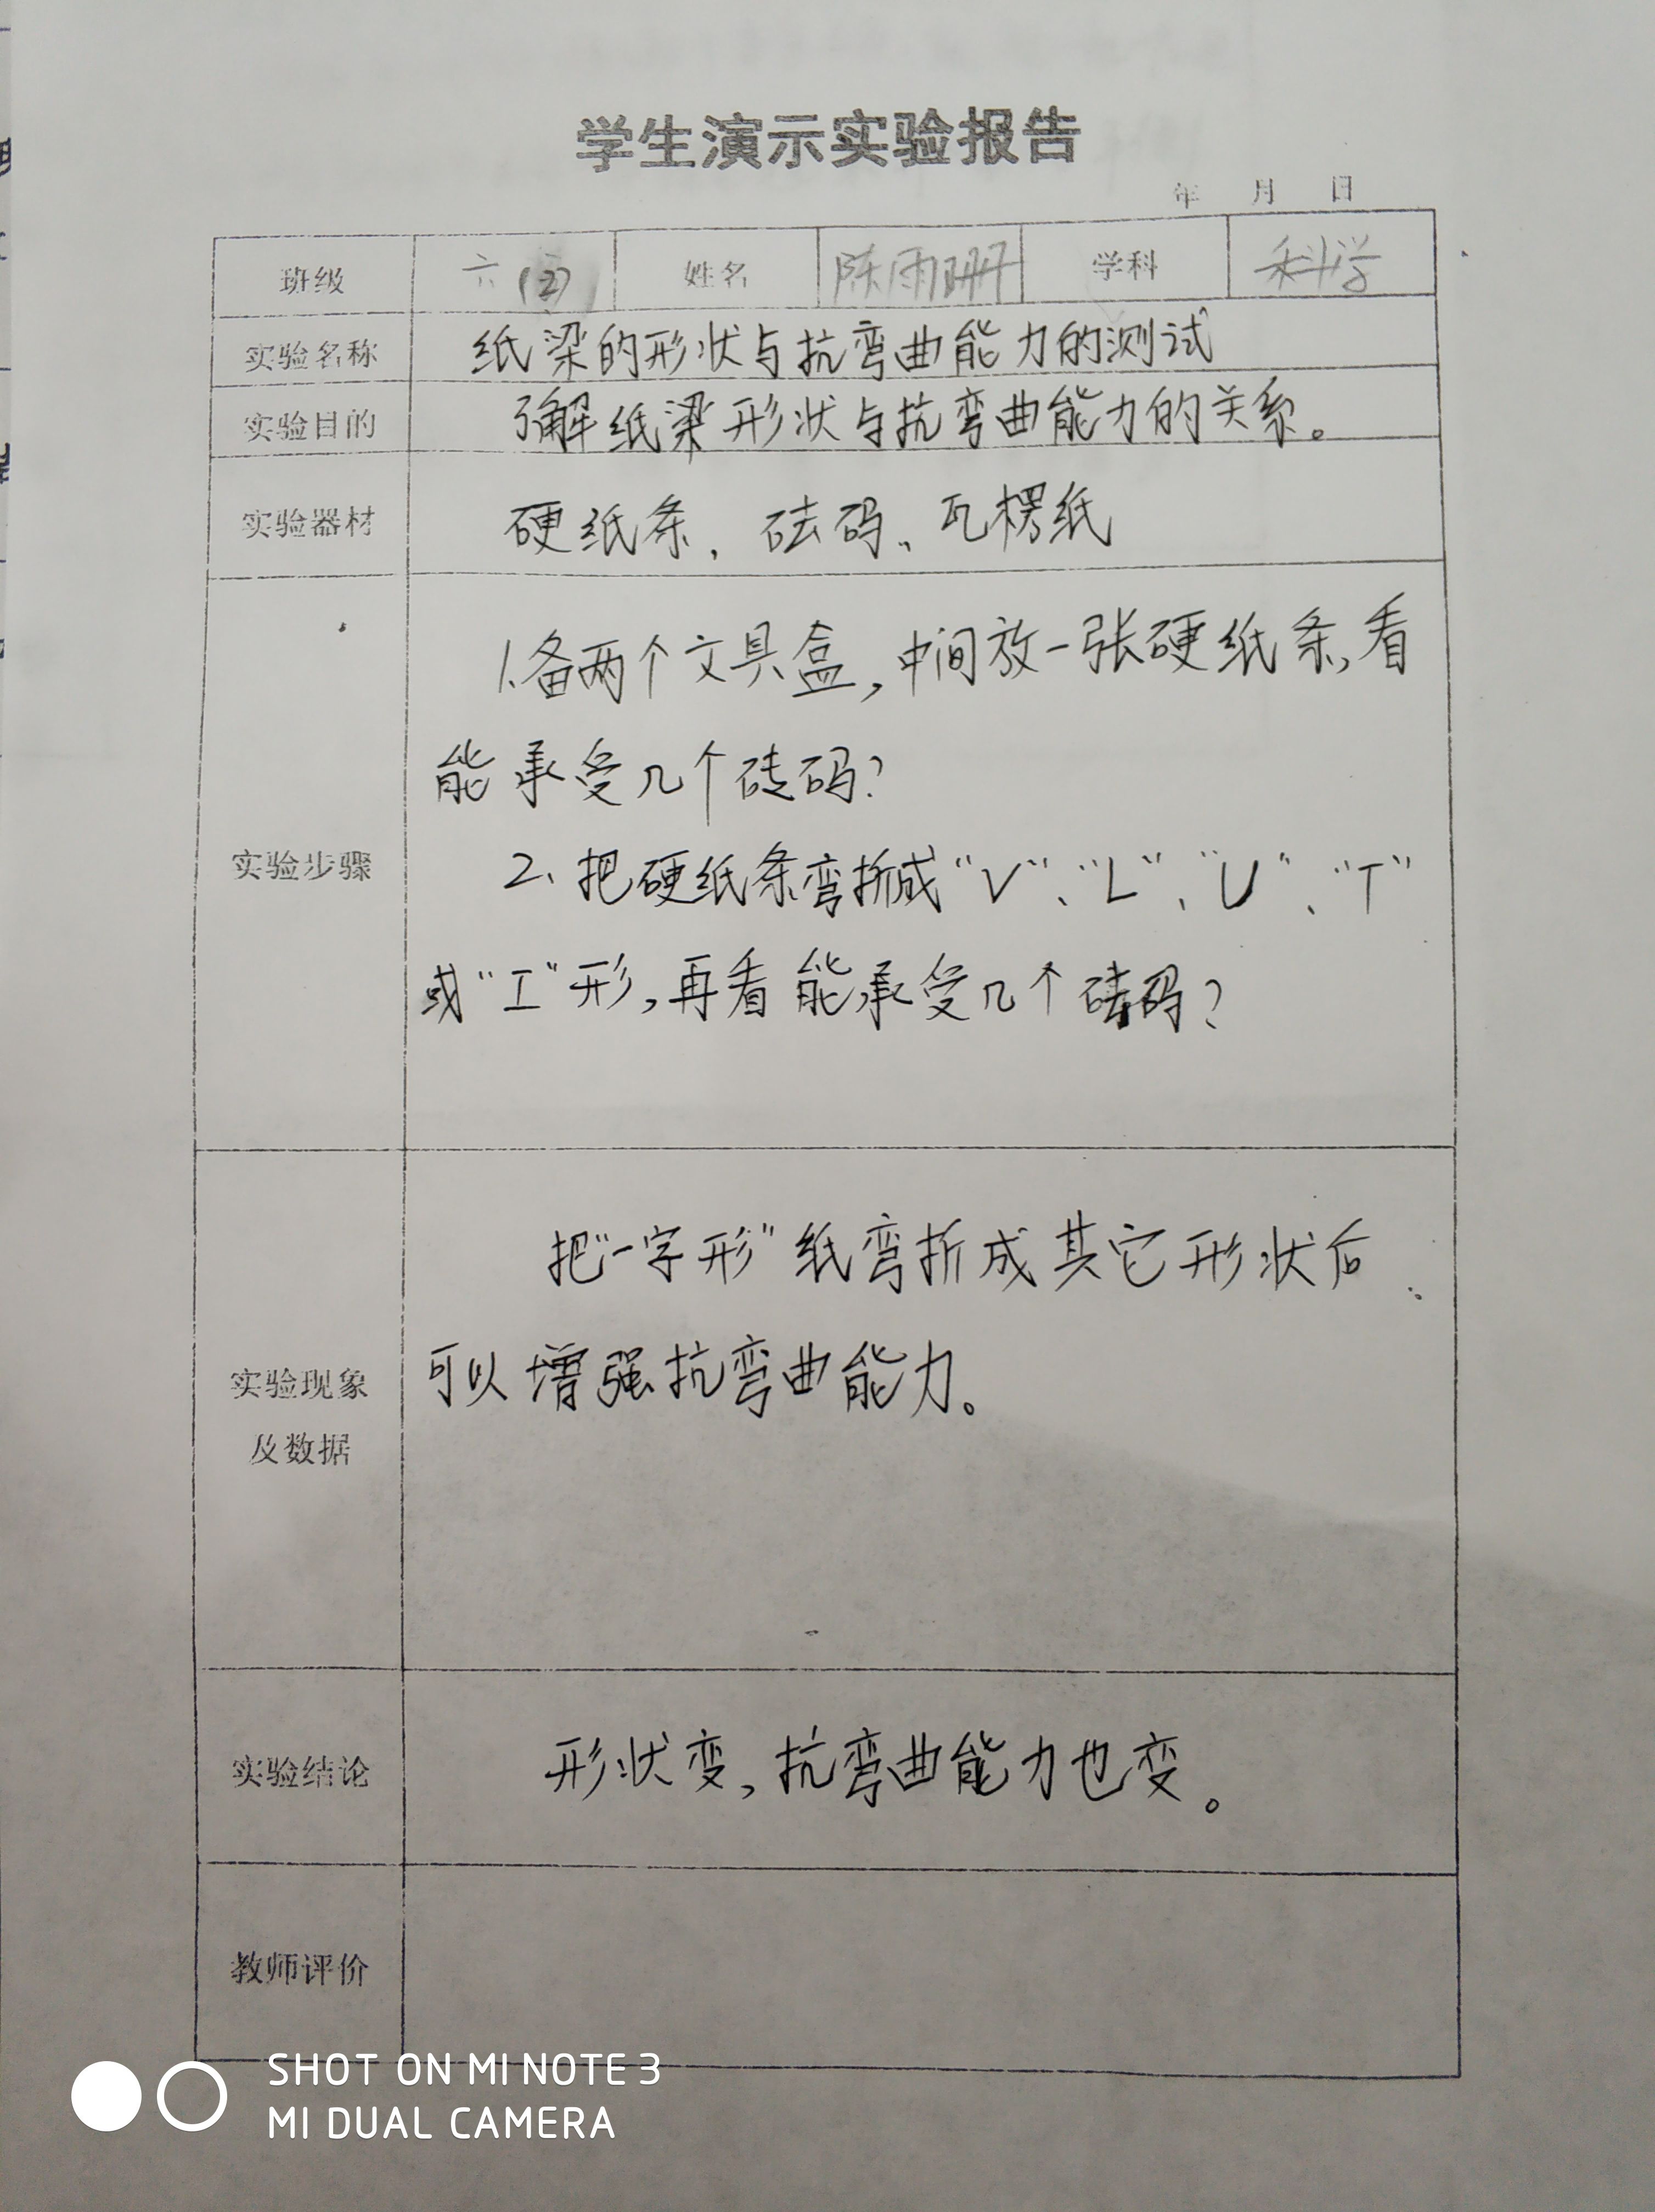 学生演示实验报告
年 月 日
班级 六(2) 姓名 陈雨珊 学科 科学
实验名称 纸梁的形状与抗弯曲能力的测试
实验目的 了解纸梁形状与抗弯曲能力的关系。
实验器材 硬纸条、砝码、瓦楞纸
1.备两个文具盒,中间放一张硬纸条,看
能承受几个砝码?
实验步骤
2、把硬纸条弯折成“V”、“L”、“U”、“T”
或“工”形,再看能承受几个砝码?
把“一字形”纸弯折成其它形状后
可以增强抗弯曲能力。
实验现象
及数据
实验结论 形状变,抗弯曲能力也变。
教师评价
SHOT ON MI NOTE 3
MI DUAL CAMERA